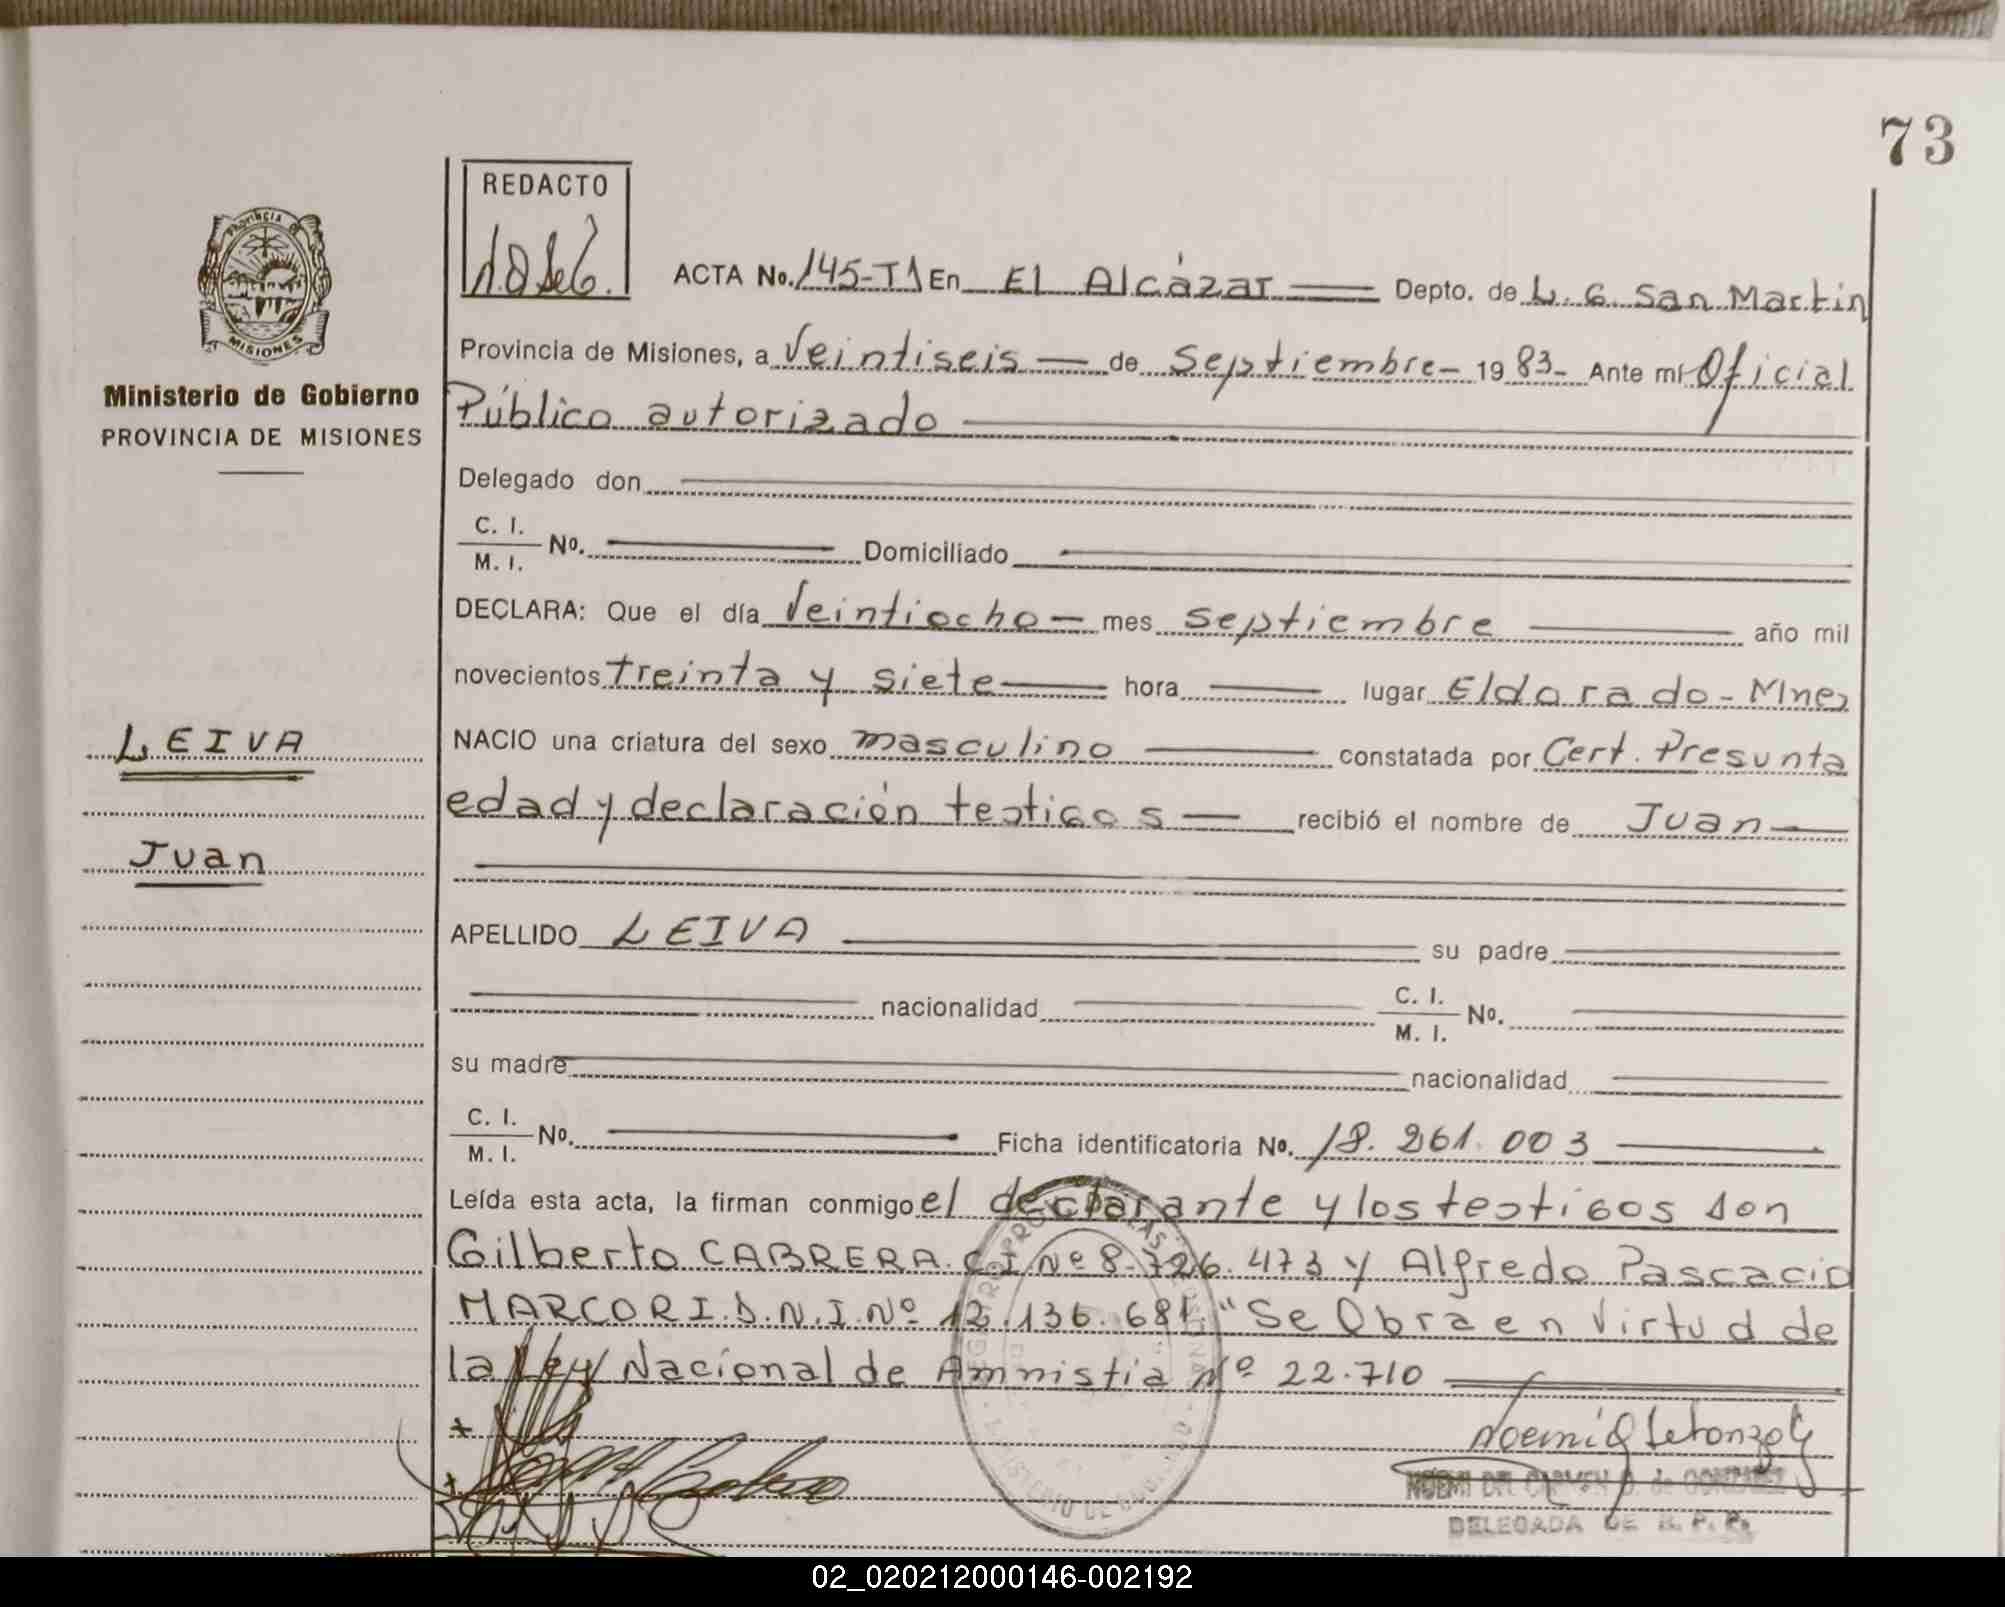 73
REDACTO
Provincia de
MISIONES
Ministerio de Gobierno
PROVINCIA DE MISIONES
ACTA No. 145-T1 En El Alcázar Depto. de L. G San Martin
Provincia de Misiones, a Veintiseis de Septiembre 1983 Ante mí Oficial
Público autorizado
Delegado don
C. I.
M. I. No. Domiciliado
DECLARA: Que el día Veintiocho mes septiembre año mil
novecientos treinta y siete hora lugar Eldorado - Mnes
LEIVA
NACIO una criatura del sexo masculino constatada por Cert. Presunta
edad y declaración testigos recibió el nombre de Juan
Juan
APELLIDO LEIVA su padre
nacionalidad C. I.
M. I. No.
su madre nacionalidad
C. I.
M. I. No. Ficha identificatoria No. 18.261.003
Leída esta acta, la firman conmigo el declarante y los testigos son
Gilberto CABRERA. CI Nº 8.726.473 y Alfredo Pascacio
MARCORI. D.N.I. Nº 12.136.681 "Se Obra en Virtud de
la Ley Nacional de Amnistia Nº 22.710
NOEMI DEL CARMEN O. de GONZALEZ
DELEGADA DE R. P. P.
02_020212000146-002192